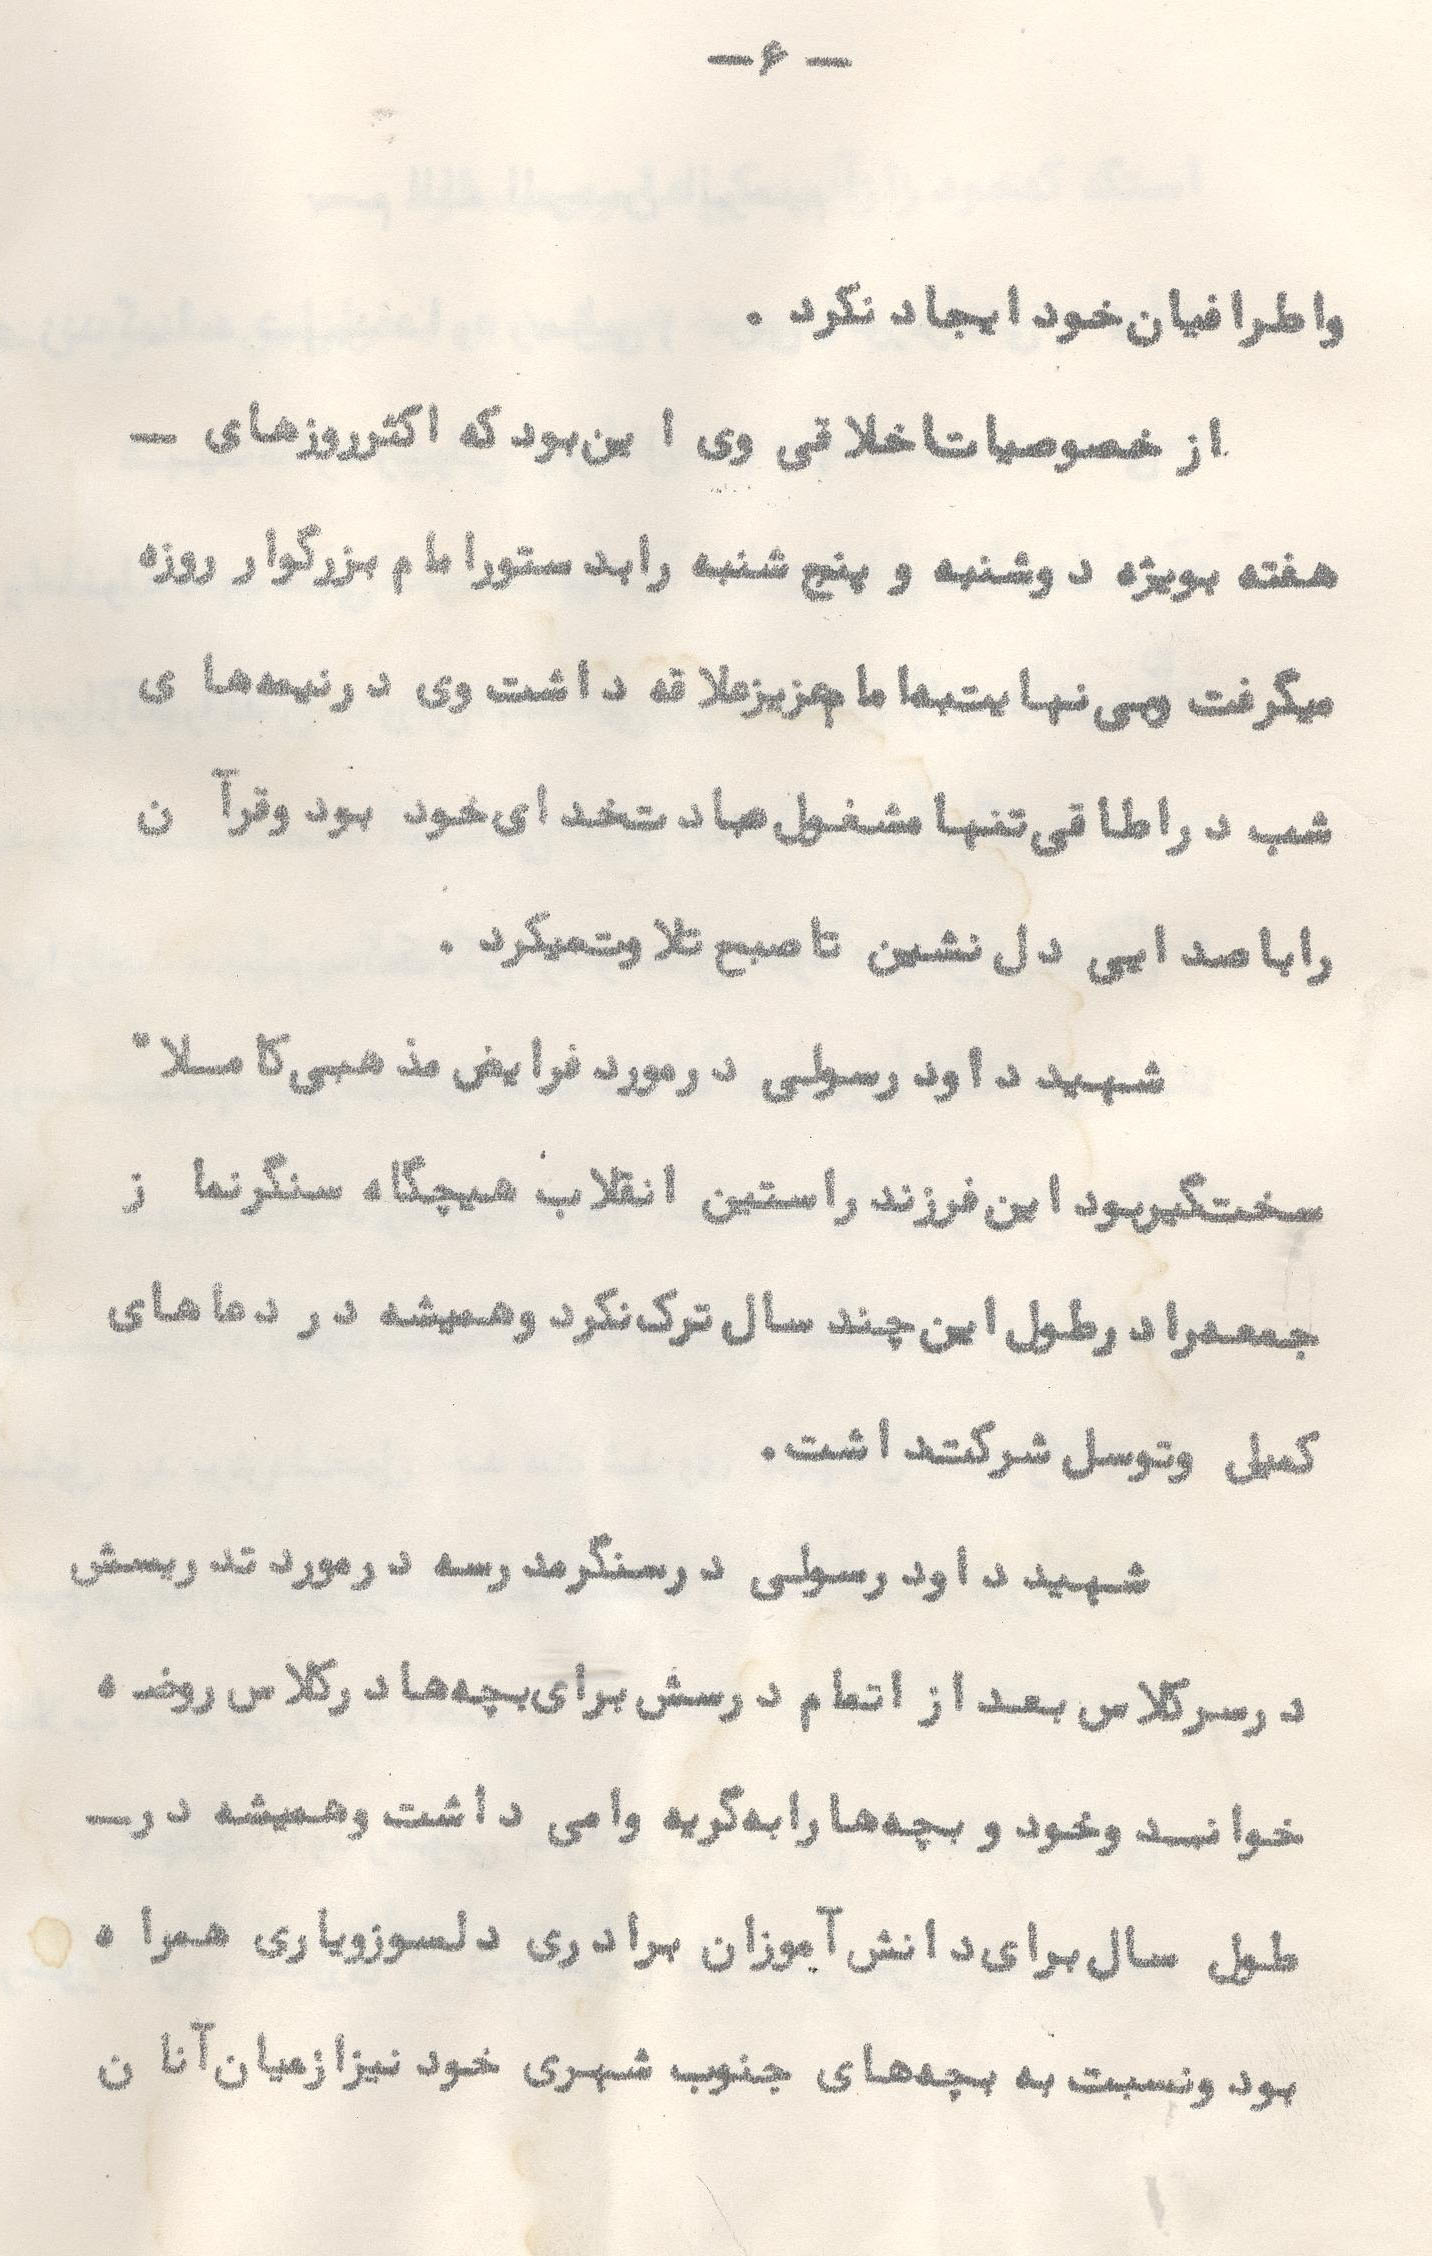 — ۶ —
واطرافیان خود ایجاد نکرد .
از خصوصیات اخلاقی وی این بود که اکثر روزهای —
هفته بویژه دوشنبه و پنج شنبه را بدستور امام بزرگوار روزه
میگرفت وبی نهایت به امام عزیز علاقه داشت وی درنیمه های
شب دراطاقی تنها مشغول عبادت خدای خود بود وقرآن
را با صدایی دل نشین تا صبح تلاوت میکرد .
شهید داود رسولی درمورد فرایض مذهبی کاملا"
سخت گیر بود این فرزند راستین انقلاب هیچگاه سنگر نماز
جمعه را درطول این چند سال ترک نکرد وهمیشه در دعاهای
کمیل وتوسل شرکت داشت.
شهید داود رسولی درسنگر مدرسه درمورد تدریسش
درسر کلاس بعد از اتمام درسش برای بچه ها درکلاس روضه
خواند وخود و بچه ها را به گریه وامی داشت وهمیشه در—
طول سال برای دانش آموزان برادری دلسوز ویاری همراه
بود ونسبت به بچه های جنوب شهری خود نیز ازمیان آنان